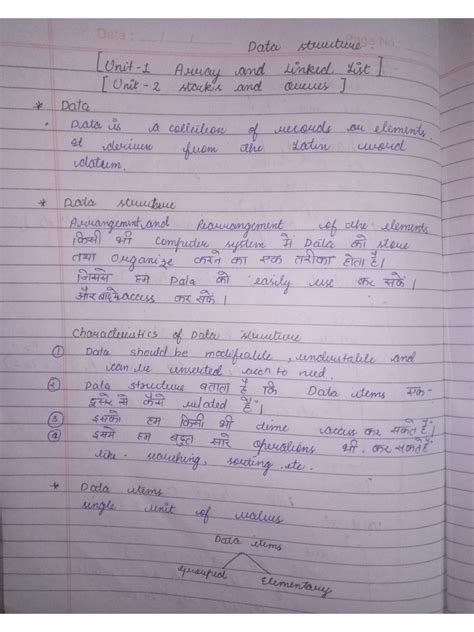 Date: / /
Page No.
Data structure.
[Unit-1 Array and Linked List]
[Unit-2 stacks and Queues]
* Data
• Data is a collection of records or elements.
It derieum from the Latin word
datum.
* Data structure
Arrangement and Rearrangement of the elements
किसी भी computer system में Data को store
तथा Organize करने का एक तरीका होता है।
जिससे हम Data को easily use कर सकें।
और बाद में access कर सकें।
Characteristics of Data structure
① Data should be modifiable, understable and
can be inserted acc to need.
② Data structure बताता है कि Data items एक-
दूसरे से कैसे related हैं।
③ इसको हम किसी भी time access कर सकते हैं।
④ इसमें हम बहुत सारे operations भी कर सकते हैं
like - searching, sorting etc.
* Data items
single unit of values
Data items
Grouped Elementary